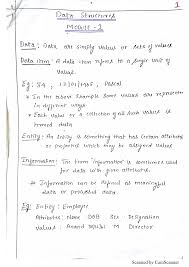 1
Data Structures
Module - 1
Data: Data are simply values or sets of values
Data item: A data item refers to a single unit of
values.
Eg: 12/01/1985, Pascal
In the above example Some values are represented
in different ways
Each value or a collection of all such values is
termed data
Entity: An Entity is something that has certain attributes
or properties which may be assigned values
Information: The term "information" is sometimes used
for data with given attributes.
Information can be defined as meaningful
data or processed data.
Eg: Entity: Employee
Attributes: Name DOB Sex Designation
Values: Anand M Director
Scanned by CamScanner